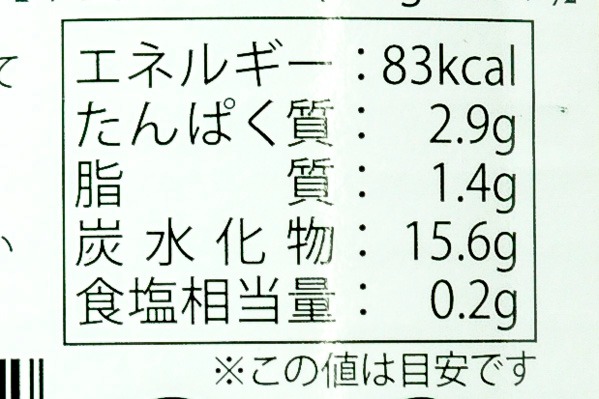 エネルギー：83kcal
たんぱく質： 2.9g
脂質： 1.4g
炭水化物： 15.6g
食塩相当量： 0.2g
※この値は目安です